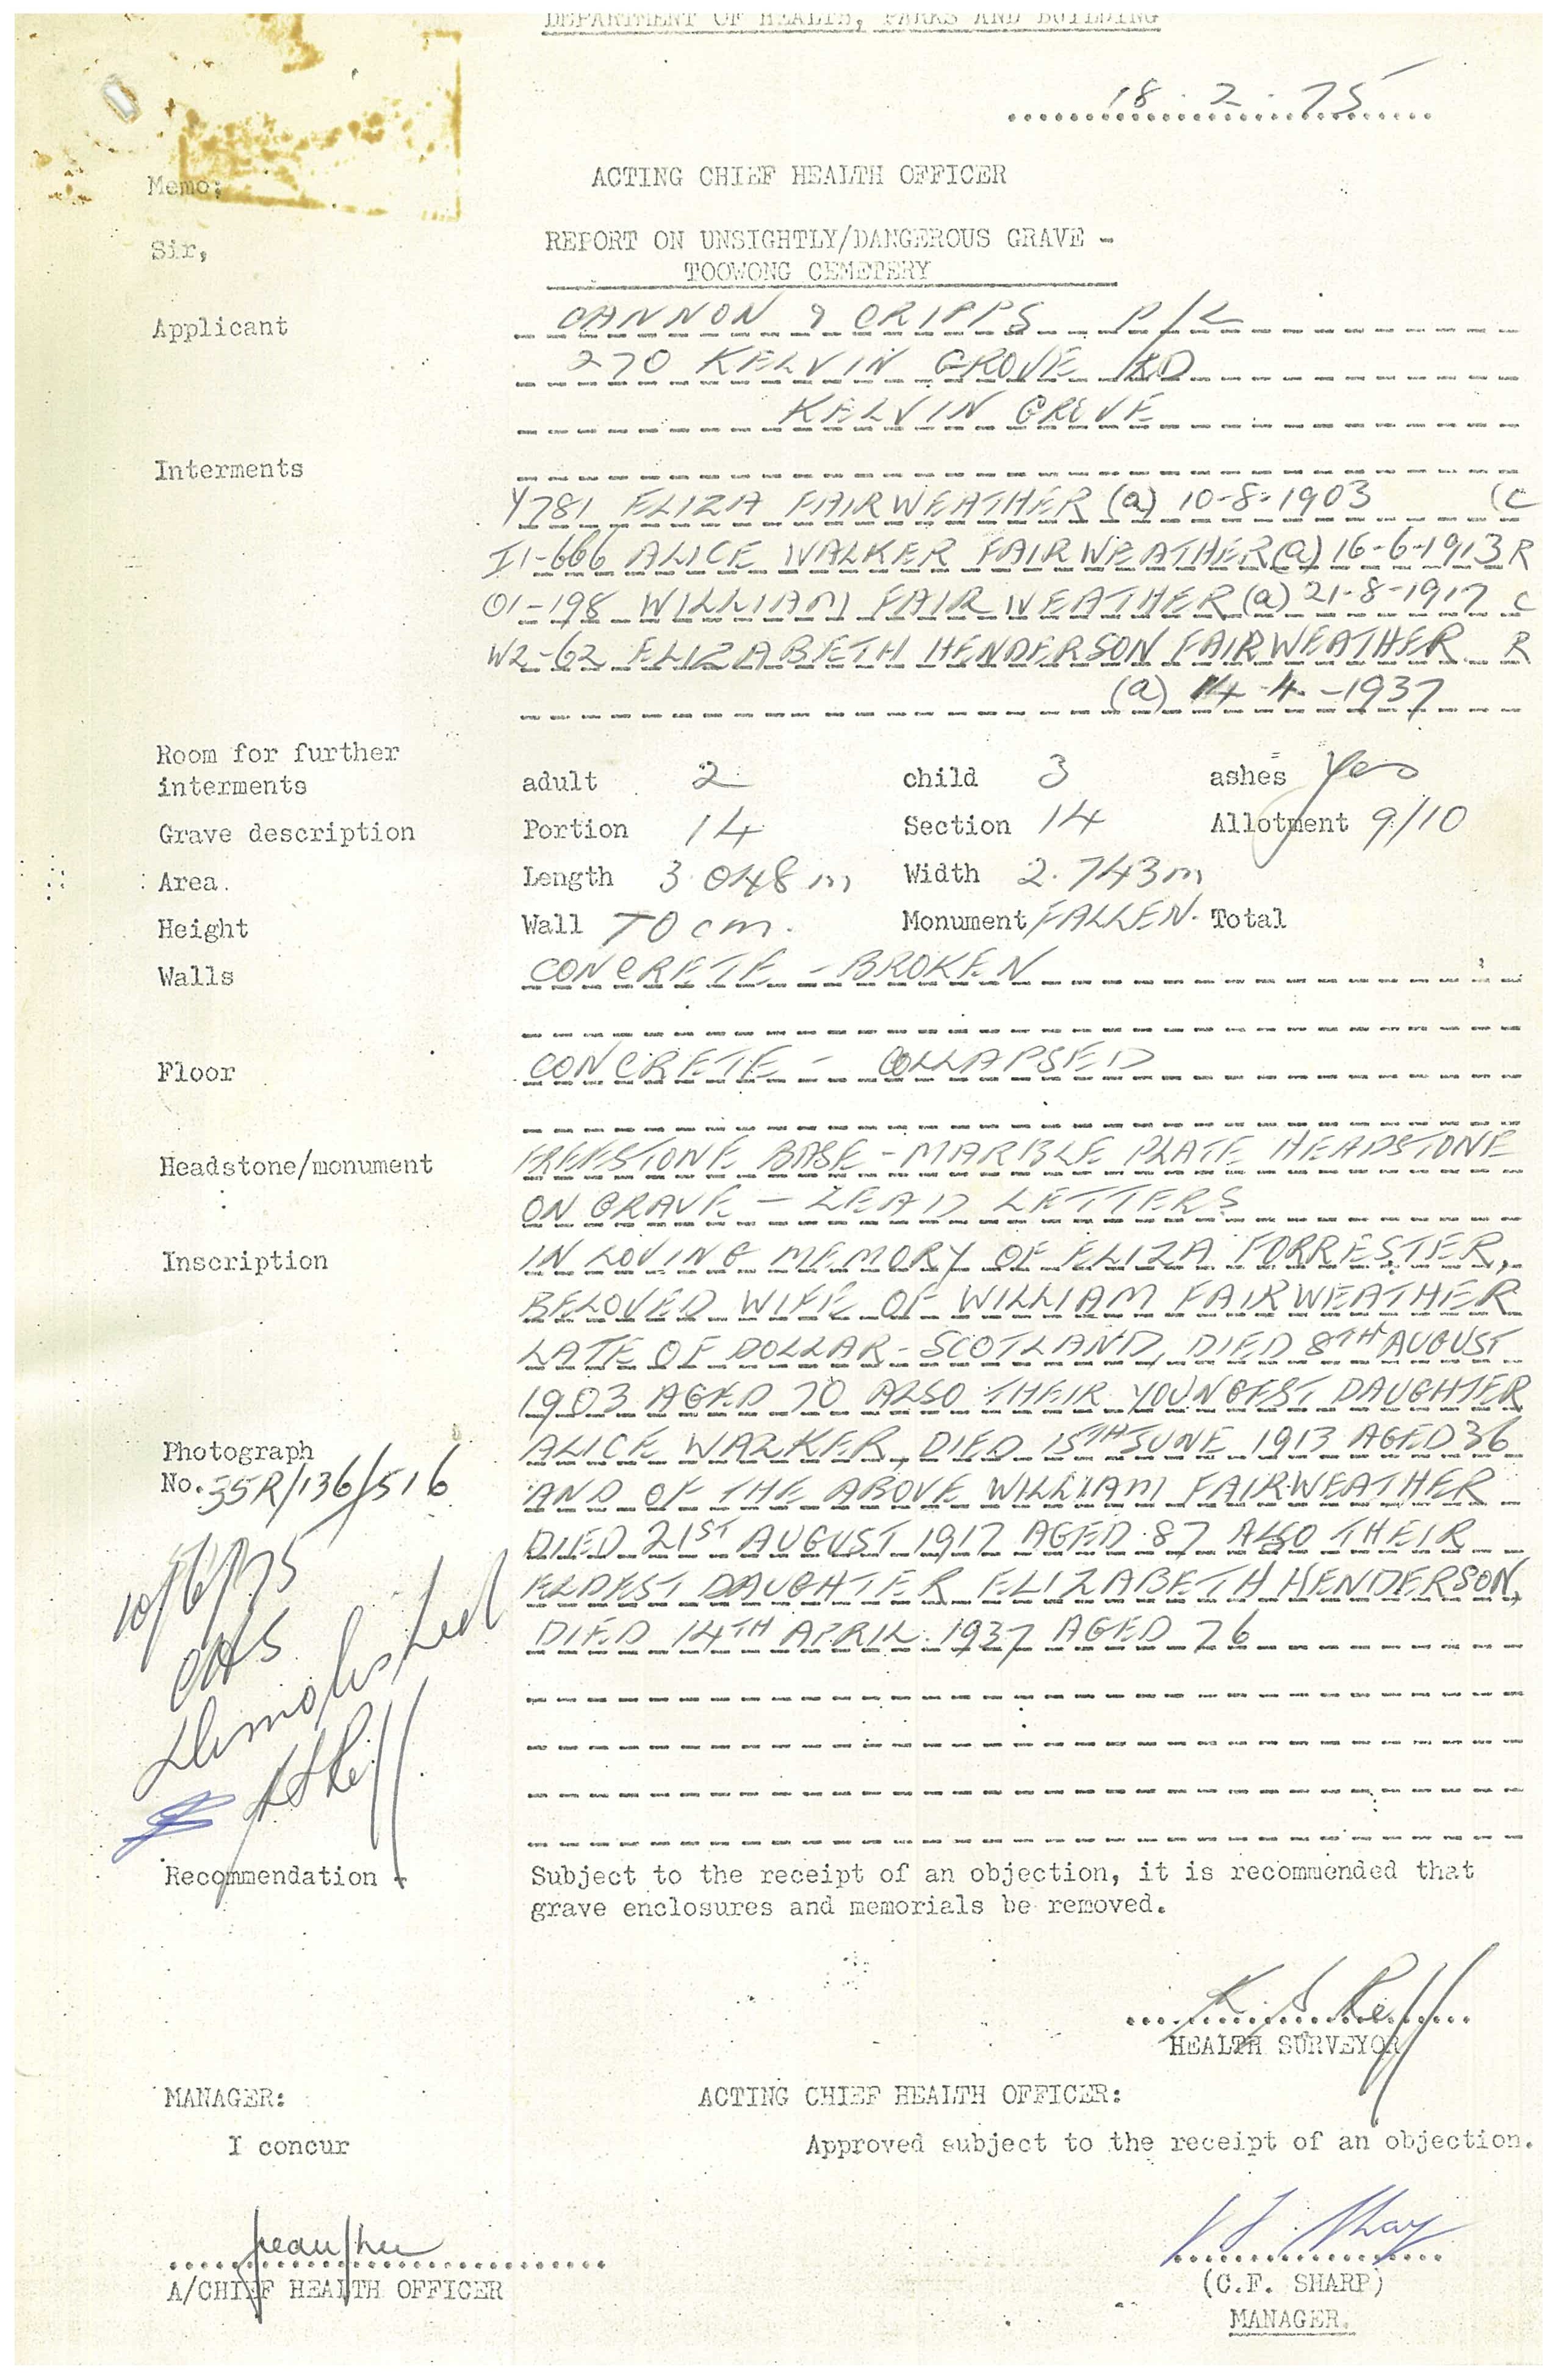 DEPARTMENT OF HEALTH, PARKS AND BUILDING
18.2.75
Memo: ACTING CHIEF HEALTH OFFICER
Sir, REPORT ON UNSIGHTLY/DANGEROUS GRAVE -
TOOWONG CEMETERY
Applicant CANNON & CRIPPS P/L
270 KELVIN GROVE RD
KELVIN GROVE
Interments
Y781 ELIZA FAIRWEATHER (a) 10-8-1903 (C
I1-666 ALICE WALKER FAIRWEATHER (a) 16-6-1913 R
O1-198 WILLIAM FAIRWEATHER (a) 21-8-1917 C
W2-62 ELIZABETH HENDERSON FAIRWEATHER R
(a) 14-4-1937
Room for further
interments adult 2 child 3 ashes Yes
Grave description Portion 14 Section 14 Allotment 9/10
Area. Length 3.048 m Width 2.743m
Height Wall 70 cm. Monument FALLEN. Total
Walls CONCRETE - BROKEN
Floor CONCRETE - COLLAPSED
Headstone/monument FREESTONE BASE - MARBLE PLATE HEADSTONE
ON GRAVE - LEAD LETTERS
Inscription IN LOVING MEMORY OF ELIZA FORRESTER,
BELOVED WIFE OF WILLIAM FAIRWEATHER
LATE OF DOLLAR - SCOTLAND, DIED 8TH AUGUST
1903 AGED 70 ALSO THEIR YOUNGEST DAUGHTER
Photograph ALICE WALKER, DIED 15TH JUNE 1913 AGED 36
No. 35R/136/516 AND OF THE ABOVE WILLIAM FAIRWEATHER
DIED 21ST AUGUST 1917 AGED 87 ALSO THEIR
ELDEST DAUGHTER ELIZABETH HENDERSON,
DIED 14TH APRIL 1937 AGED 76
10/6/75
Demolished
Recommendation Subject to the receipt of an objection, it is recommended that
grave enclosures and memorials be removed.
HEALTH SURVEYOR
MANAGER: ACTING CHIEF HEALTH OFFICER:
I concur Approved subject to the receipt of an objection.
A/CHIEF HEALTH OFFICER (C.F. SHARP)
MANAGER.